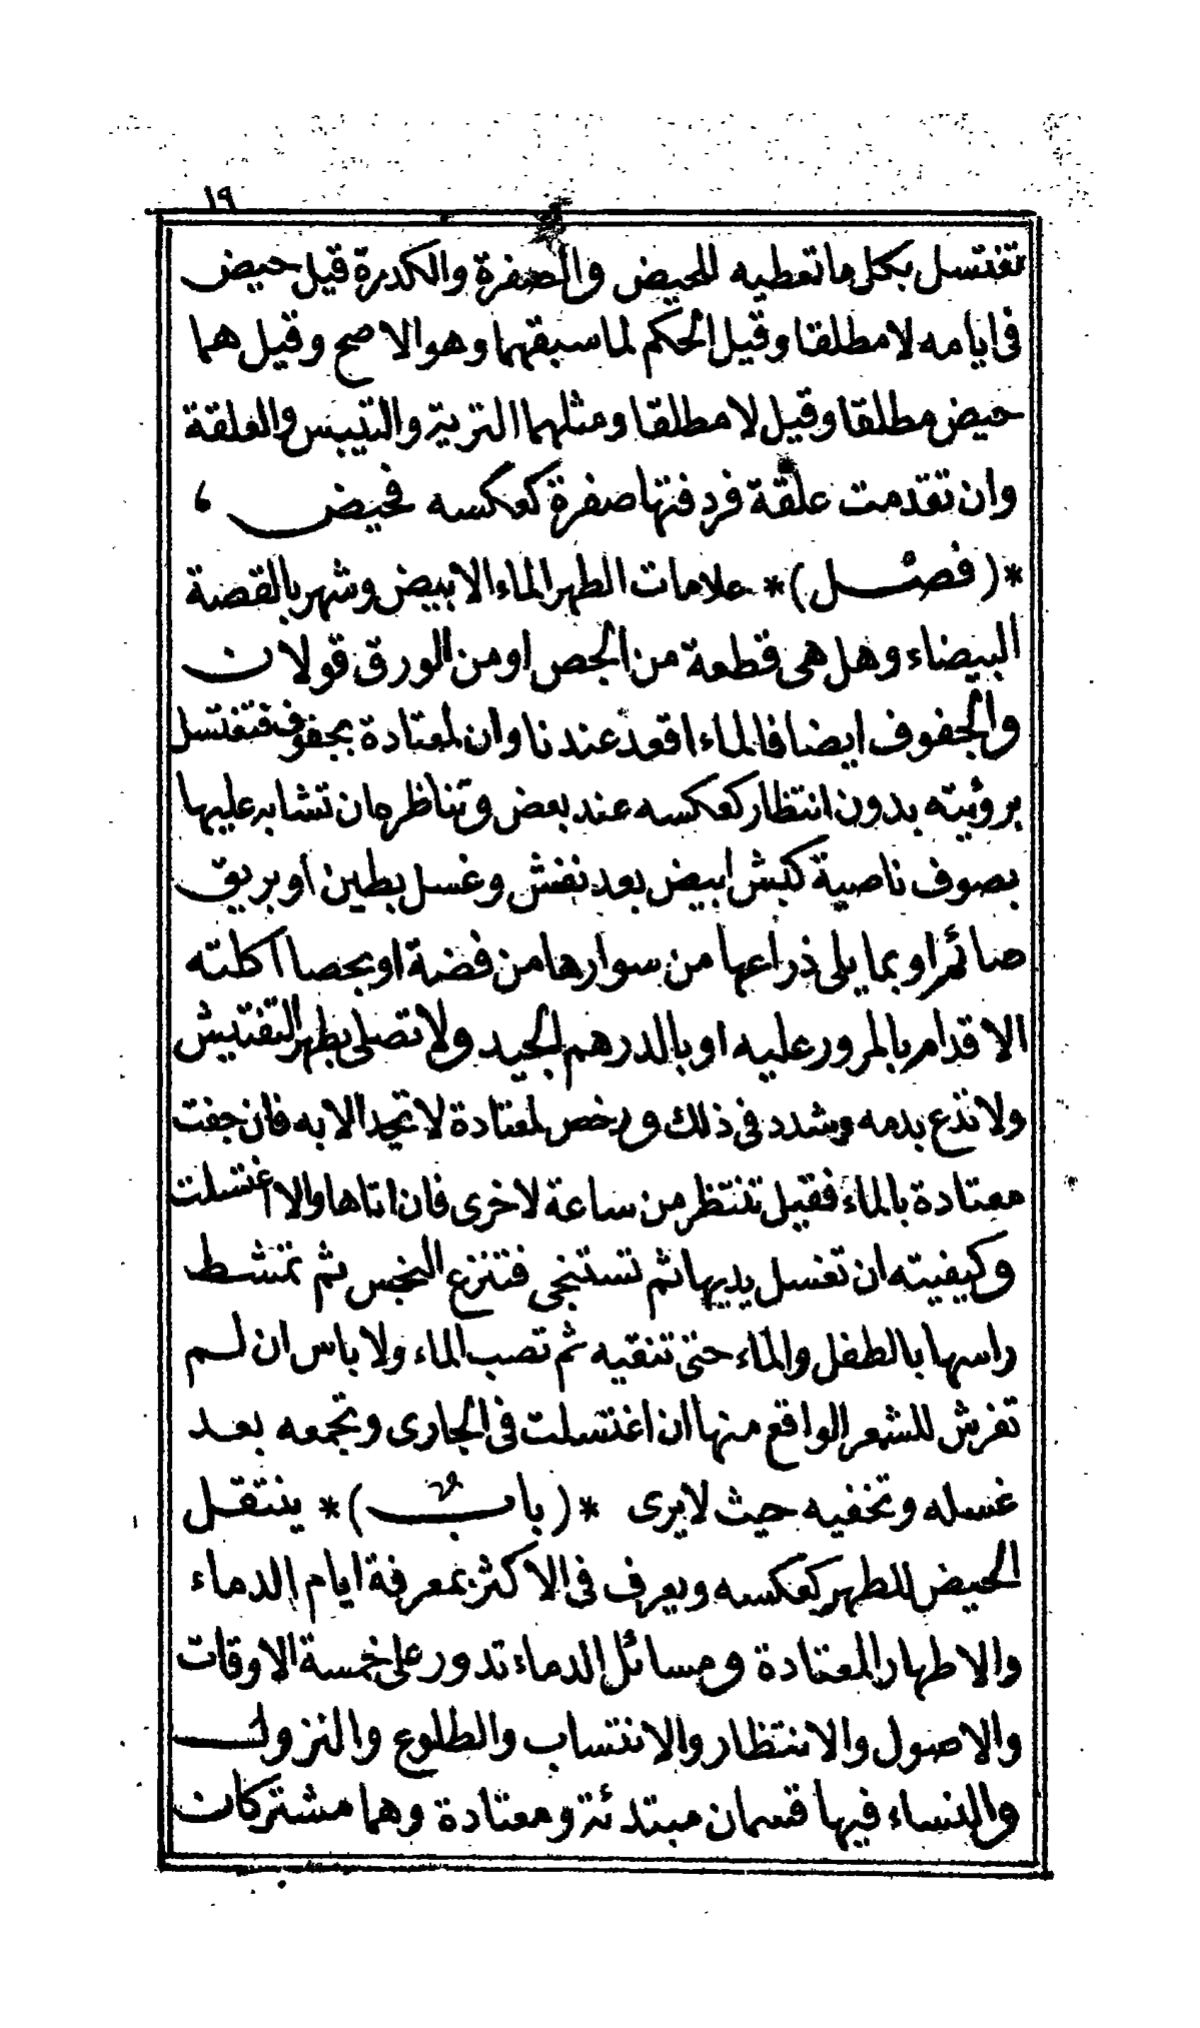 ١٩
تغتسل بكل ما تعطيه للحيض والصفرة والكدرة قيل حيض
فى ايامه لا مطلقا وقيل الحكم لما سبقهما وهو الاصح وقيل هما
حيض مطلقا وقيل لا مطلقا ومثلهما الترية والتيبس والعلقة
وان تقدمت علقة فردفتها صفرة كعكسه فحيض ،
*( فصل )* علامات الطهر الماء الابيض وشهر بالقصة
البيضاء وهل هى قطعة من الجص او من الورق قولان
والجفوف ايضا فالماء اقعد عندنا وان لمعتادة بجفوف فتغتسل
برؤيته بدون انتظار كعكسه عند بعض وتناظره ان تشابه عليها
بصوف ناصية كبش ابيض بعد نفش وغسل بطين أو بريق
صائم او بما يلى ذراعها من سوارها من فضة او بحصا اكلته
الاقدام بالمرور عليه او بالدرهم الجيد ولا تصلى بطهر التفتيش
ولا تدع بدمه وشدد فى ذلك ورخص لمعتادة لا تجد الا به فان جفت
معتادة بالماء فقيل تنتظر من ساعة لاخرى فان اتاها والا اغتسلت
وكيفيته ان تغسل يديها ثم تستنجى فتنزع النجس ثم تمشط
راسها بالطفل والماء حتى تنقيه ثم تصب الماء ولا باس ان لم
تفرش للشعر الواقع منها ان اغتسلت فى الجارى وتجمعه بعد
غسله وتخفيه حيث لا يرى *( باب )* ينتقل
الحيض للطهر كعكسه ويعرف فى الاكثر بمعرفة ايام الدماء
والاطهار المعتادة ومسائل الدماء تدور على خمسة الاوقات
والاصول والانتظار والانتساب والطلوع والنزول
والنساء فيها قسمان مبتدئة ومعتادة وهما مشتركات